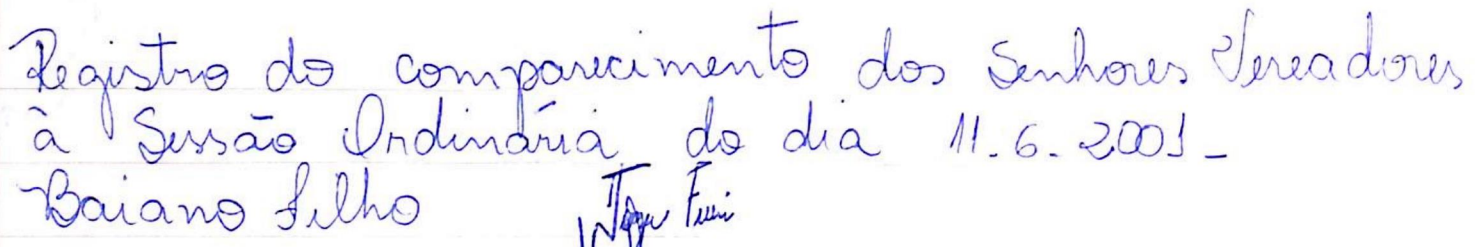 Registro do comparecimento dos Senhores Vereadores
à Sessão Ordinária do dia 11.6.2001-
Baiano Filho